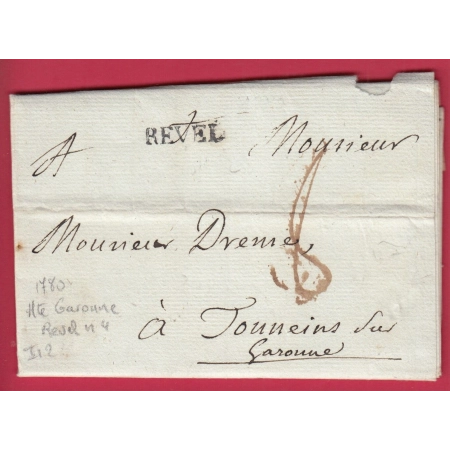 REVEL
A Monsieur
Monsieur Dreme,
8
à Tonneins sur
Garonne
1780
Hte Garonne
Revel n 4
In 2